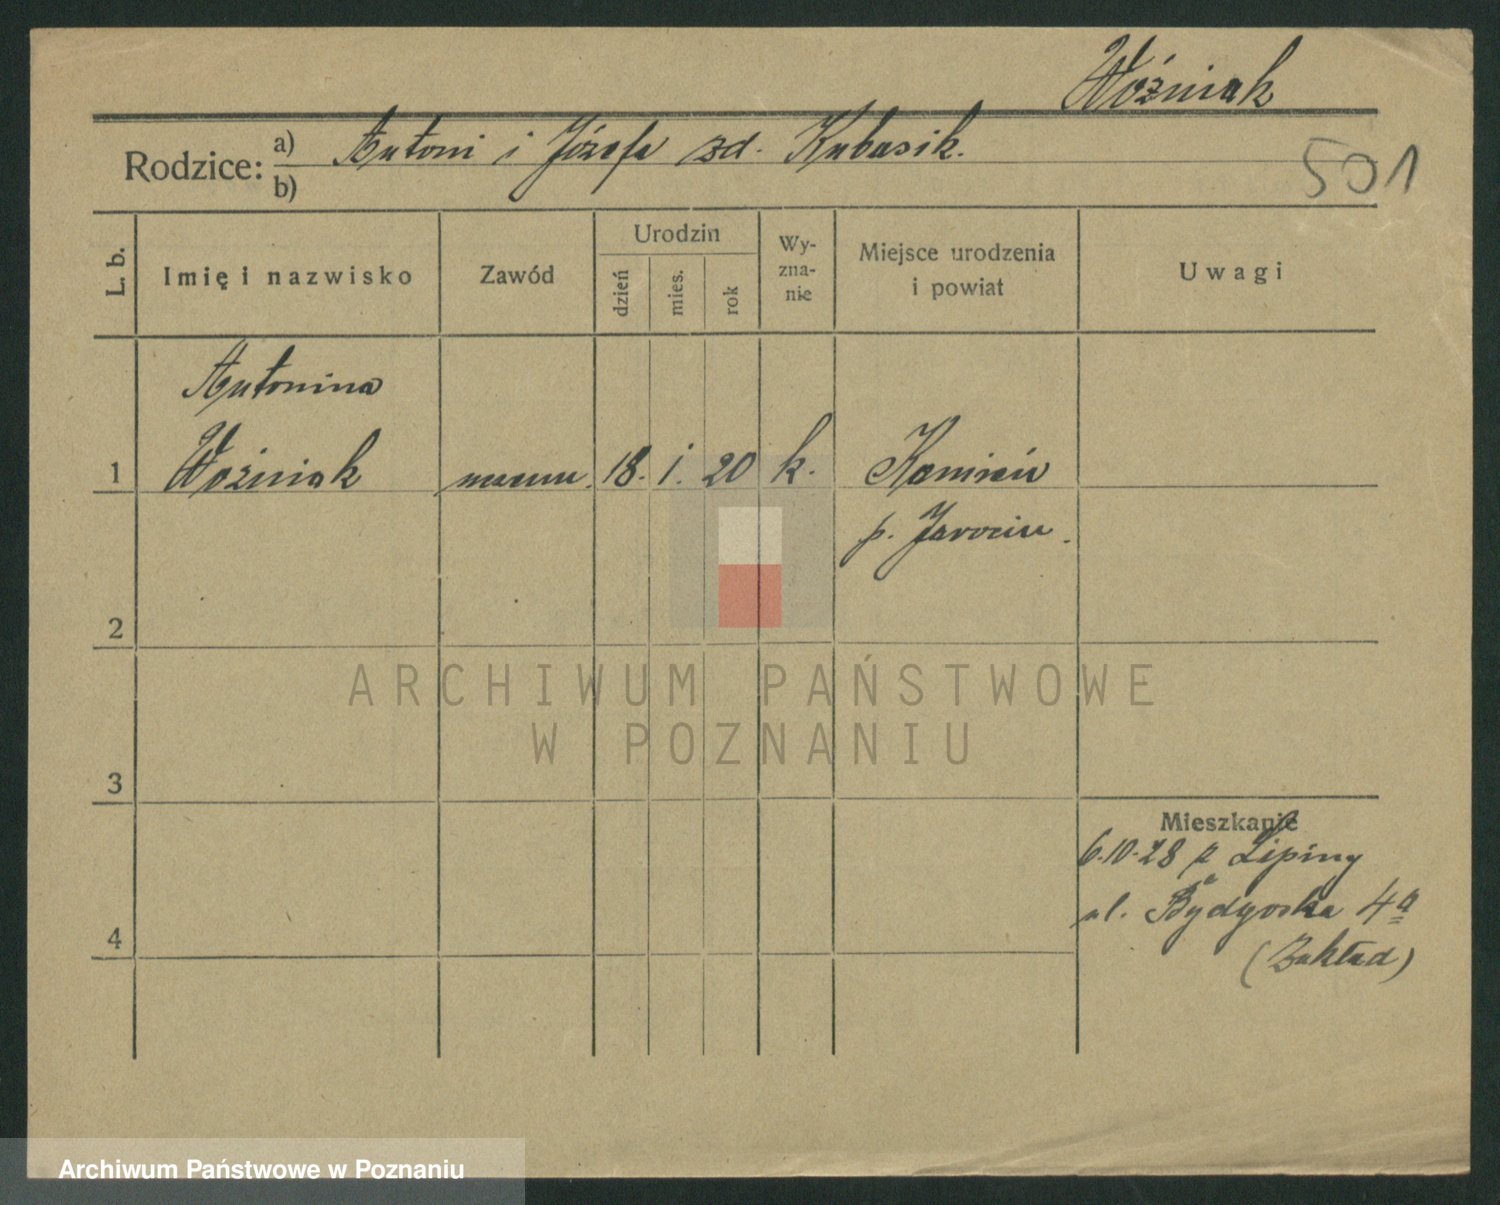 Woźniak
Rodzice: a) Antoni i Józefa zd. Kubasik.
b)
501
L. b.
Imię i nazwisko
Zawód
Urodzin
dzień
mies.
rok
Wy-
zna-
nie
Miejsce urodzenia
i powiat
Uwagi
Antonina
1 Woźniak 18. 1. 20 k. Kamień
p. Jarocin.
2
3
4
Mieszkanie
6.10.28 z Lipiny
ul. Bydgoska 4a
(Zakład)
ARCHIWUM PAŃSTWOWE
W POZNANIU
Archiwum Państwowe w Poznaniu